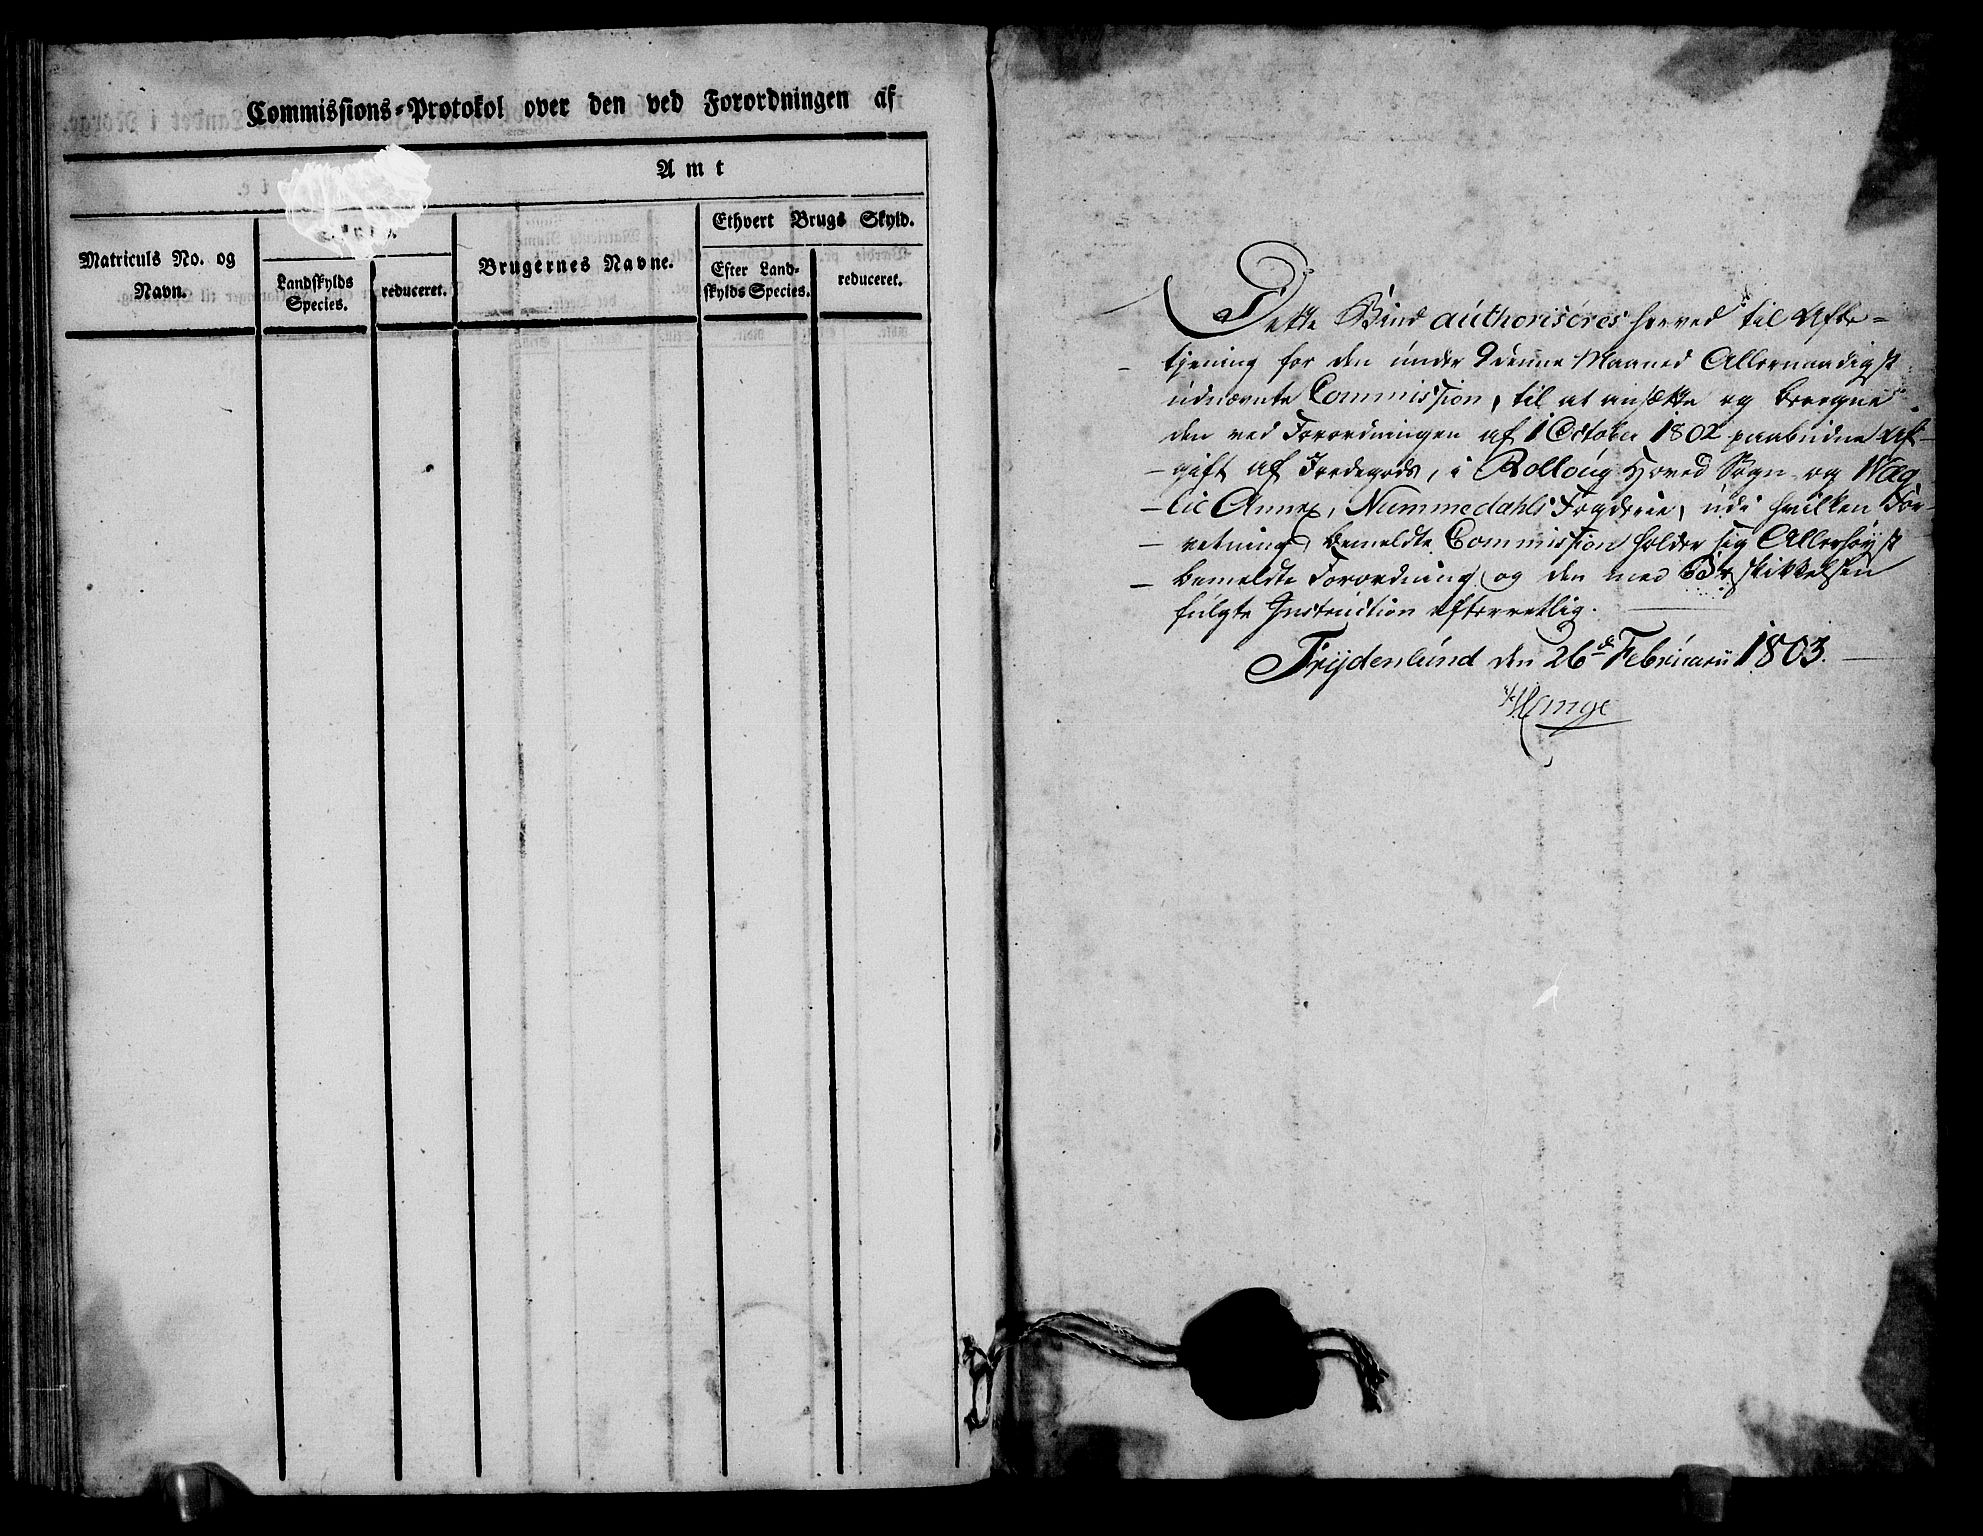 Commissions-Protokol over den ved Forordningen af
Amt
Matriculs No. og
Navn.
Landskylds
Species.
reduceret.
Brugernes Navne.
Ethvert Brugs Skyld.
Efter Land-
skylds Species.
reduceret.
Dette Bind authoriseres herved til Afbe-
tjening for den under 9 denne Maaned Allernaadigst
udnævnte Commission, til at ansætte og beregne
den ved Forordningen af 1 October 1802 paabudne Af-
gift af Jordegods, i Rolloug Hoved Sogn og Wæg
lie Annex, Nummedahls Fogderie, udi hvilken For-
retning bemeldte Commission holder sig Allerhøyst
bemeldte Forordning og den med Beskikkelsen
fulgte Instruction efterretlig.
Frydenlund den 26de Februarii 1803.